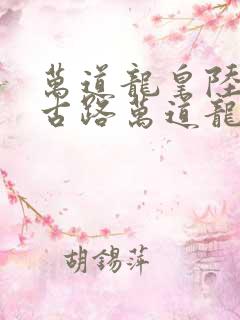 萬道龍皇陸
古路萬道龍
胡錫萍